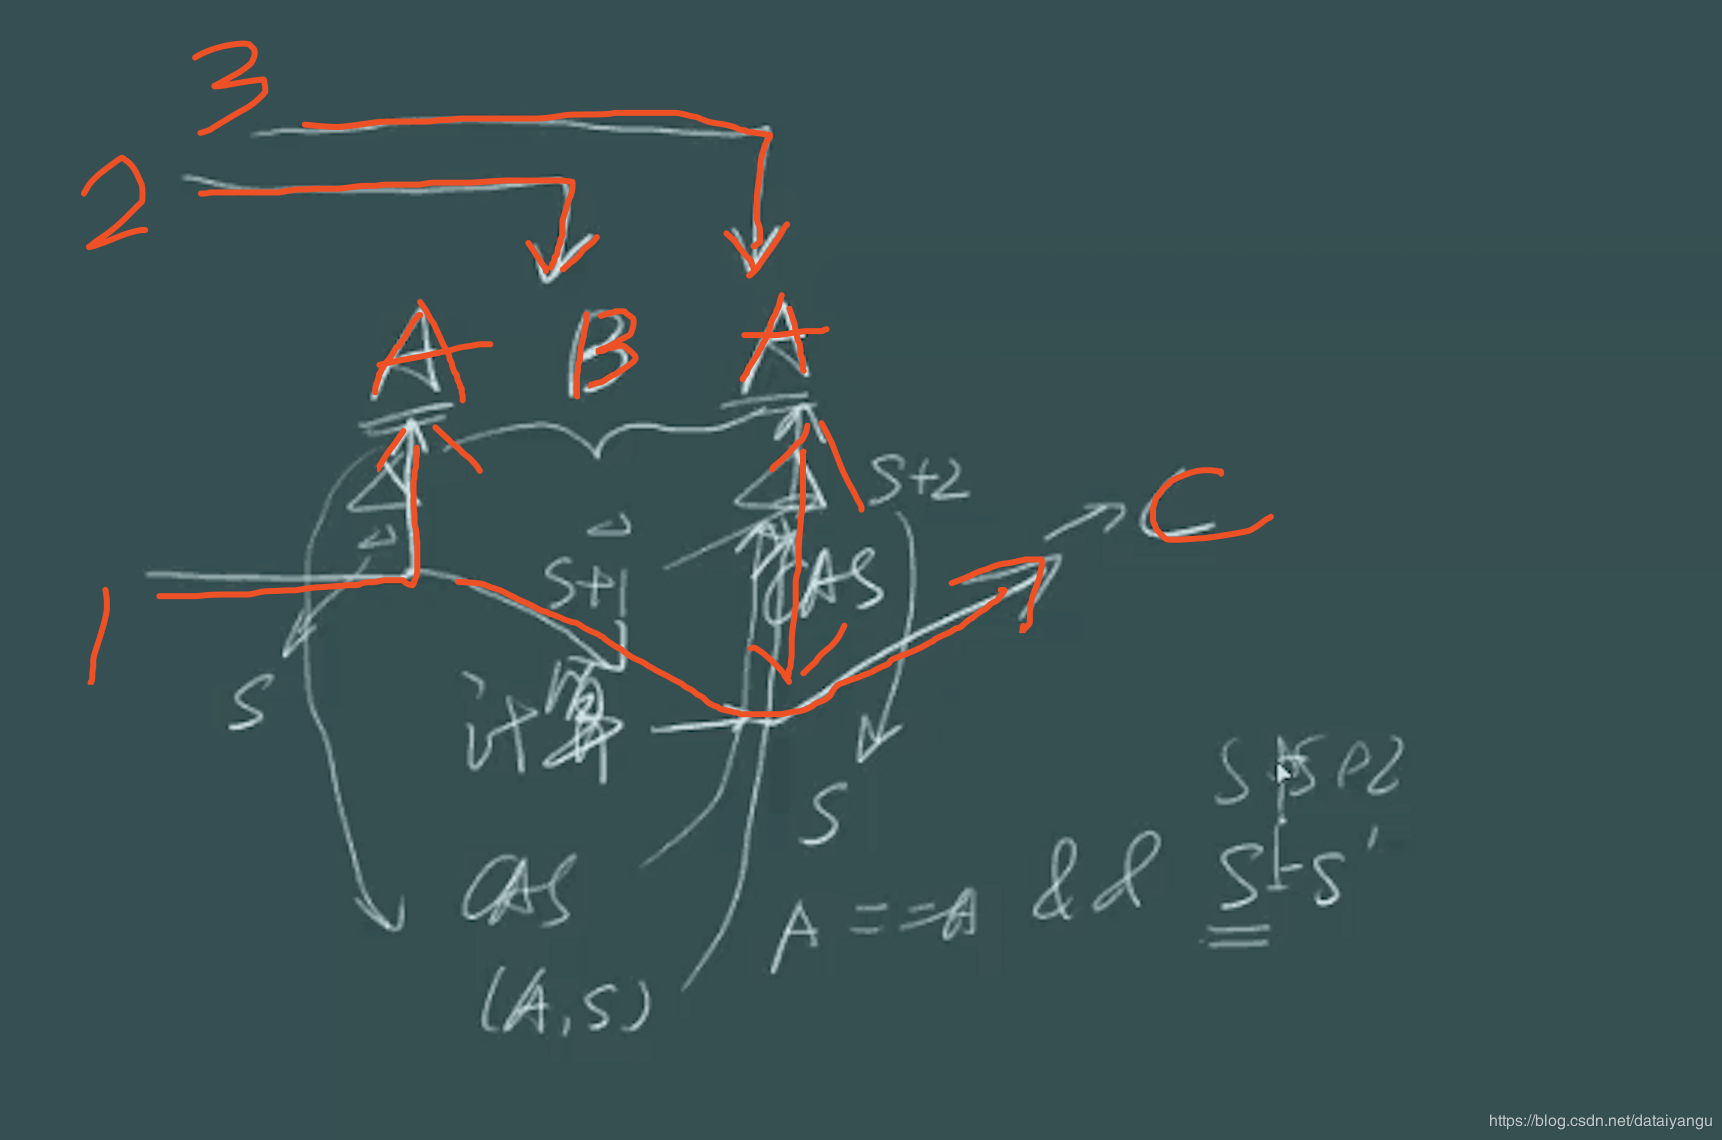 3
2
A B A
S+2
C
S+1
CAS
1
S
计算
S
CAS
A == A && S
(A,S)
https://blog.csdn.net/dataiyangu